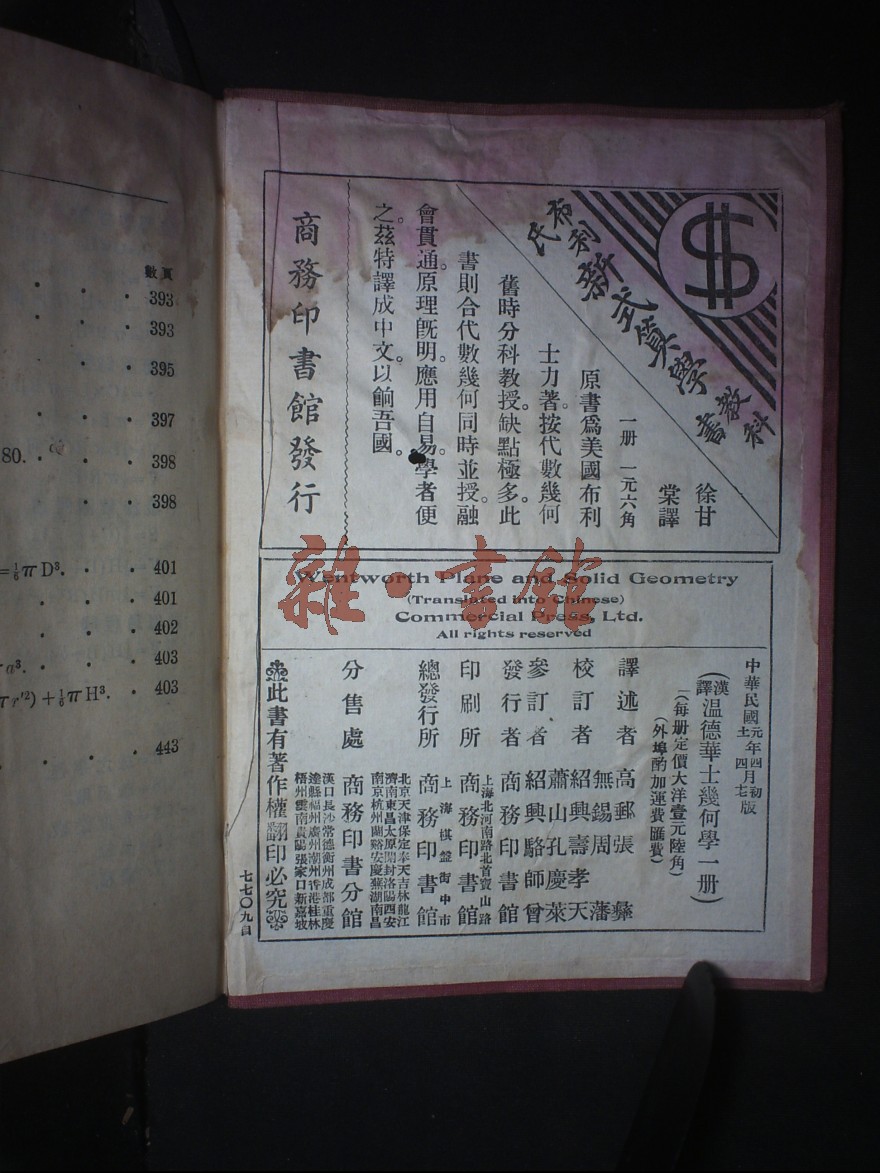 數頁
393
393
395
397
80. 398
398
=⅙πD³. 401
401
402
a³. 403
πr'²)+⅙πH³. 403
443
布利氏
新式算學教科書
徐甘棠譯
一册 一元六角
原書爲美國布利
士力著。按代數幾何
舊時分科教授。缺點極多。此
書則合代數幾何同時並授。融
會貫通。原理旣明。應用自易。學者便
之。茲特譯成中文。以餉吾國。
商務印書館發行
Wentworth Plane and Solid Geometry
(Translated into Chinese)
Commercial Press, Ltd.
All rights reserved
中華民國元年四月初版
(漢譯溫德華士幾何學一册)
(每册定價大洋壹元陸角)
(外埠酌加運費匯費)
譯述者 高郵張彝
校訂者 無錫周藩
紹興壽孝天
參訂者 蕭山孔慶萊
紹興駱師曾
發行者 商務印書館
印刷所 上海北河南路北首寶山路
商務印書館
總發行所 上海棋盤街中市
商務印書館
分售處 北京天津保定奉天吉林龍江
濟南東昌太原開封洛陽西安
南京杭州蘭谿安慶蕪湖南昌
商務印書分館
漢口長沙常德衡州成都重慶
達縣福州廣州潮州香港桂林
梧州雲南貴陽張家口新嘉坡
此書有著作權翻印必究
七七〇九自
雜·書館